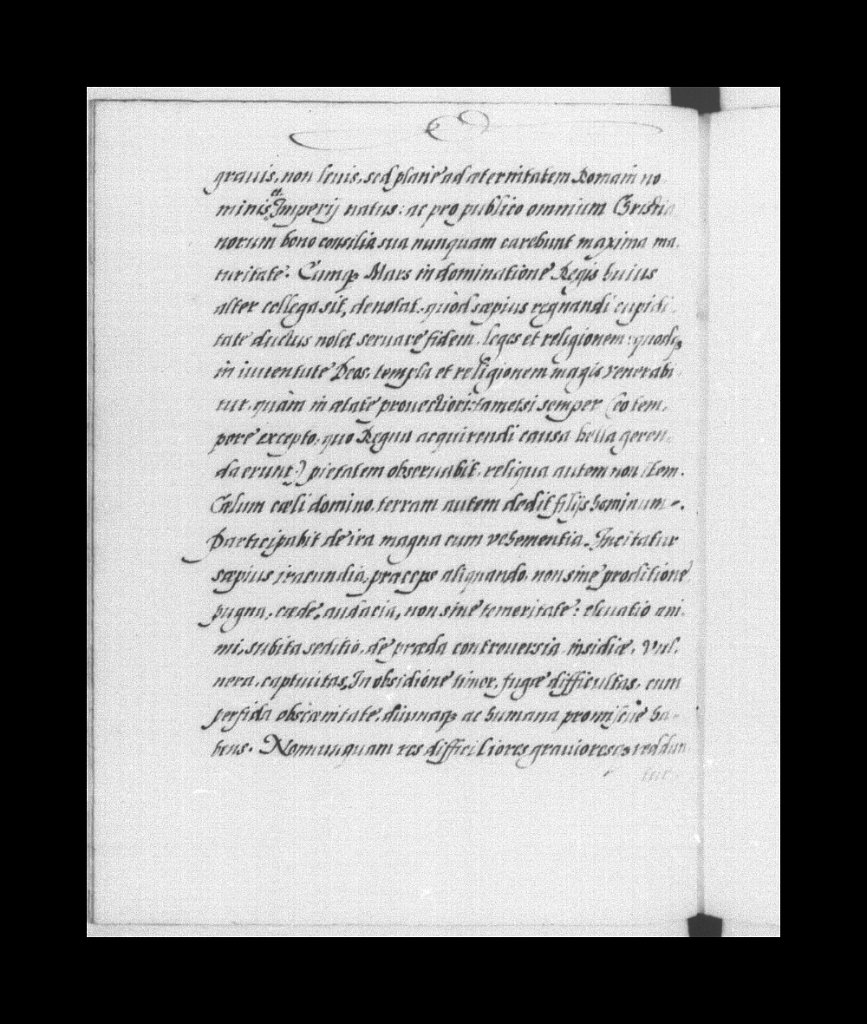 grauis, non leuis, sed planè ad æternitatem Romani no
minis et Imperij natus: ac pro publico omnium Christia
norum bono consilia sua nunquam carebunt maxima ma.
turitate. Cumq Mars in dominatione Regis huius
alter collega sit, denotat, quòd sæpius regnandi cupidi
tate ductus nolet seruare fidem, leges et religionem: quodq
in iuuentute Deos, templa et religionem magis venerabi
tur, quàm in ætate prouectiori: tametsi semper (eo tem.
pore excepto, quo Regna acquirendi causa bella geren.
da erunt) pietatem obseruabit, reliqua autem non item.
Cælum cæli domino, terram autem dedit filijs hominum.
Participabit de ira magna cum vehementia. Incitatur
sæpius iracundia, præceps aliquando, non sine proditione
pugna, cæde, audacia, non sine temeritate: eleuatio ani
mi, subita seditio, de præda controuersia insidiæ, vul.
nera, captiuitas, In obsidione timor, fugæ difficultas, cum
perfida obscænitate, diuinaq ac humana promiscue ha
bens. Nonnunquam res difficiliores grauioresq reddun
tur